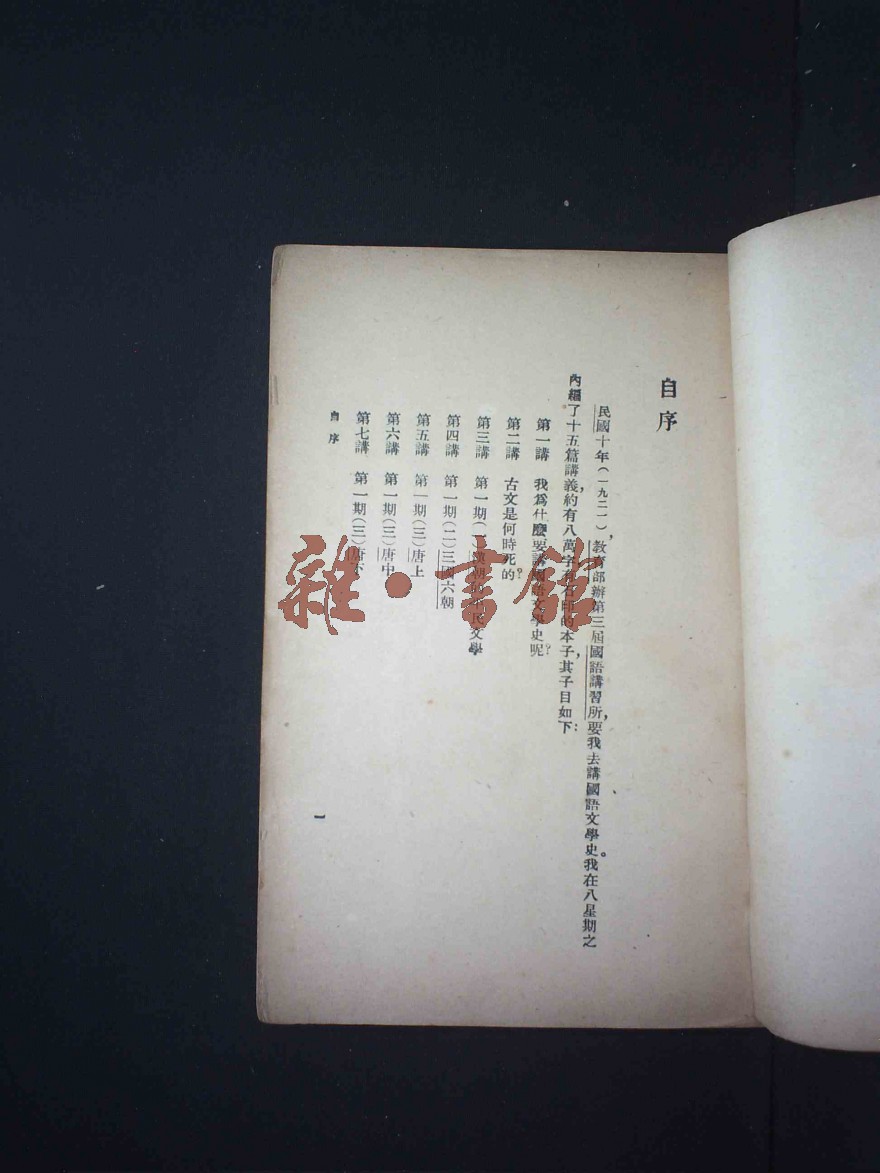 自序
民國十年(一九二一),教育部辦第三屆國語講習所,要我去講國語文學史。我在八星期之
內編了十五篇講義,約有八萬字,有石印的本子,其子目如下:
第一講 我為什麼要講國語文學史呢?
第二講 古文是何時死的?
第三講 第一期(一)漢朝的平民文學
第四講 第一期(二)三國六朝
第五講 第一期(三)唐上
第六講 第一期(三)唐中
第七講 第一期(三)唐下
自序
一
雜·書館